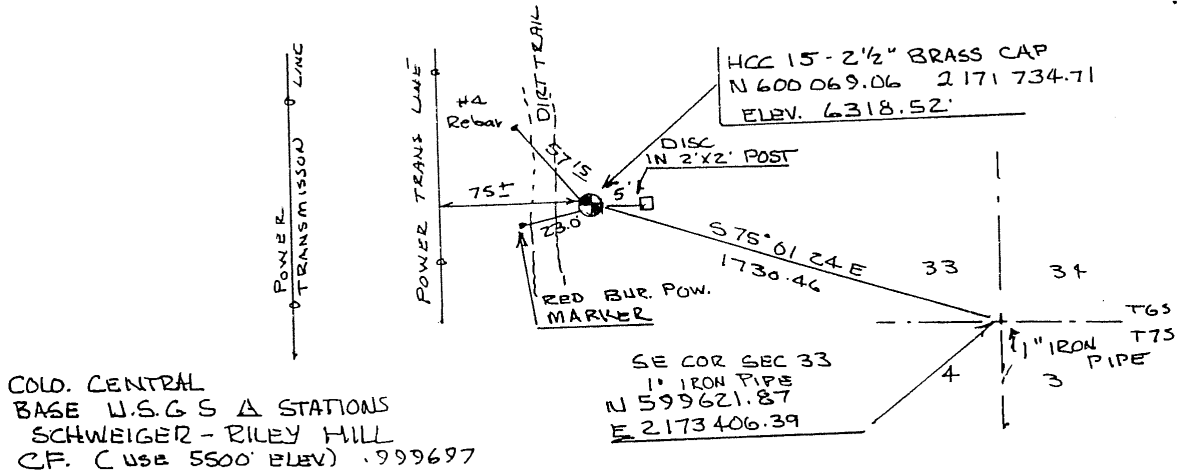 POWER
TRANSMISSON LINE
POWER TRANS LINE
DIRT TRAIL
#4
Rebar
57 15
75±
23.0'
RED BUR. POW.
MARKER
HCC 15 - 2½" BRASS CAP
N 600 069.06 2 171 734.71
ELEV. 6318.52'
DISC
IN 2'X2' POST
5'
S 75° 01 24 E
1730.46
33 34
T6S
T7S
1" IRON
PIPE
4 3
SE COR SEC 33
1" IRON PIPE
N 599621.87
E 2173406.39
COLO. CENTRAL
BASE U.S.G S △ STATIONS
SCHWEIGER - RILEY HILL
C.F. ( USE 5500' ELEV) .999697